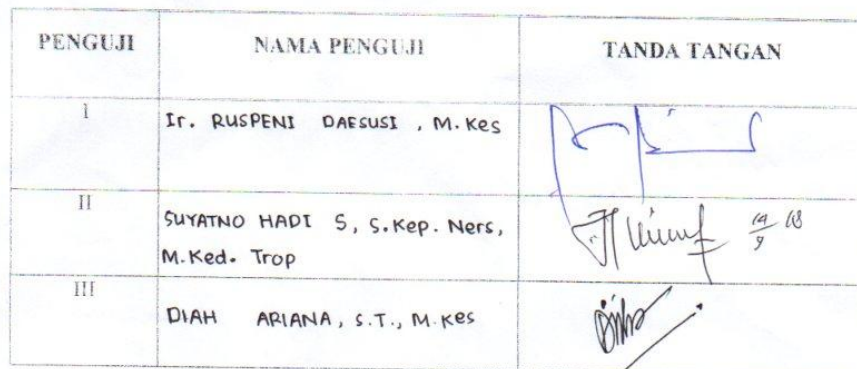 PENGUJI NAMA PENGUJI TANDA TANGAN
I Ir. RUSPENI DAESUSI , M. Kes
II SUYATNO HADI S, S.Kep. Ners,
M.Ked. Trop
III DIAH ARIANA, S.T., M.Kes